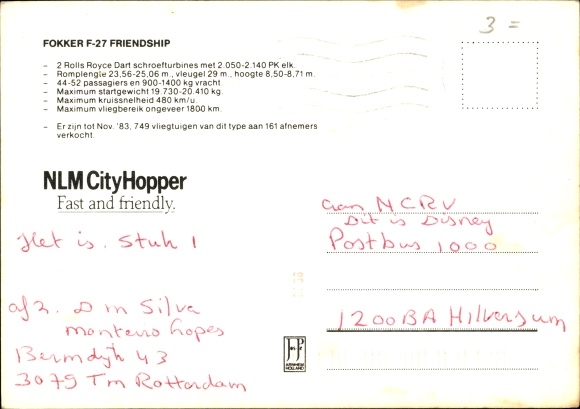 3 =
FOKKER F-27 FRIENDSHIP
– 2 Rolls Royce Dart schroefturbines met 2.050-2.140 PK elk.
– Romplengte 23,56-25,06 m., vleugel 29 m., hoogte 8,50-8,71 m.
– 44-52 passagiers en 900-1400 kg vracht.
– Maximum startgewicht 19.730-20.410 kg.
– Maximum kruissnelheid 480 km/u.
– Maximum vliegbereik ongeveer 1800 km.
– Er zijn tot Nov. '83, 749 vliegtuigen van dit type aan 161 afnemers
verkocht.
NLM CityHopper
Fast and friendly.
Het is. Stuk 1
afz. D M Silva
monteiro Lopes
Bermdijk 43
3079 Tm Rotterdam
aan NCRV
Dit is Disney
Postbus 1000
1200BA Hilversum
ARNHEM
HOLLAND